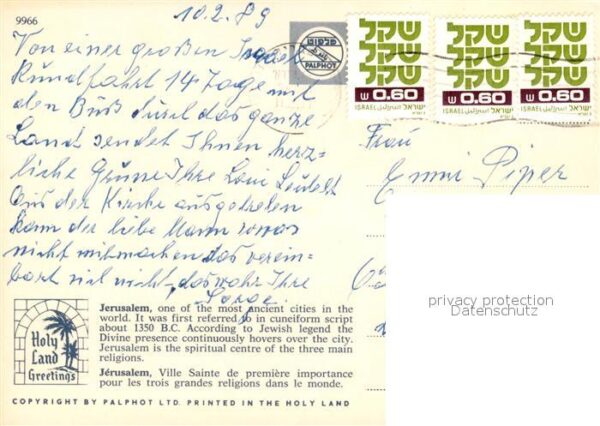 9966
10.2.89
פלפוט
PALPHOT
שקל שקל שקל
שקל שקל שקל
שקל שקל שקל
0.60
0.60
0.60
ISRAEL اسرائيل ישראל
ISRAEL اسرائيل ישראל
ISRAEL اسرائيل ישראל
Von einer großen Israel
Rundfahrt 14 Tage mit
den Buß durch das ganze
Land sendet Ihnen herz-
liche Grüsse Ihre Loni
aus der Kirche ausgetreten
kann der liebe Mann sowas
nicht mitmachen das verein-
bart sich nicht, das wahr Ihre
Sorge.
Frau
Emmi Piper
privacy protection
Datenschutz
Holy
Land
Greetings
Jerusalem, one of the most ancient cities in the
world. It was first referred to in cuneiform script
about 1350 B.C. According to Jewish legend the
Divine presence continuously hovers over the city.
Jerusalem is the spiritual centre of the three main
religions.
Jérusalem, Ville Sainte de première importance
pour les trois grandes religions dans le monde.
COPYRIGHT BY PALPHOT LTD. PRINTED IN THE HOLY LAND